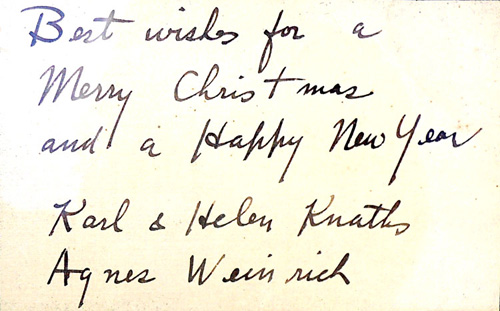 Best wishes for a
Merry Christmas
and a Happy New Year
Karl & Helen Knaths
Agnes Weinrich